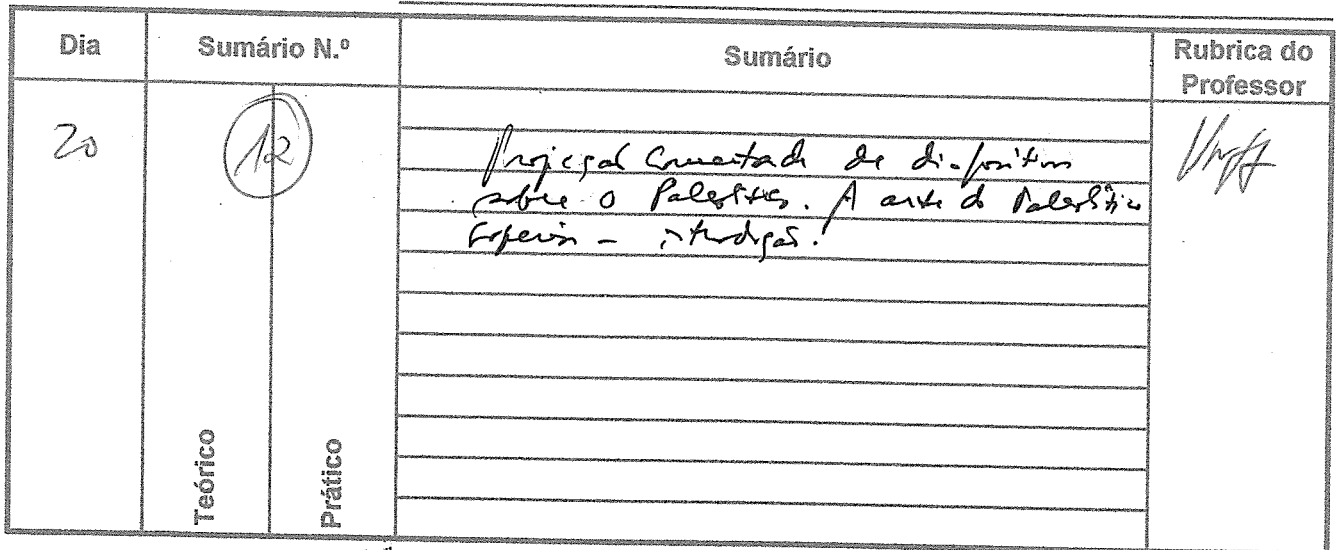 Dia Sumário N.º Sumário Rubrica do Professor
20 12
Projecção comentada de diapositivos
sobre o Paleolítico. A arte do Paleolítico
Superior - introdução.
Teórico Prático